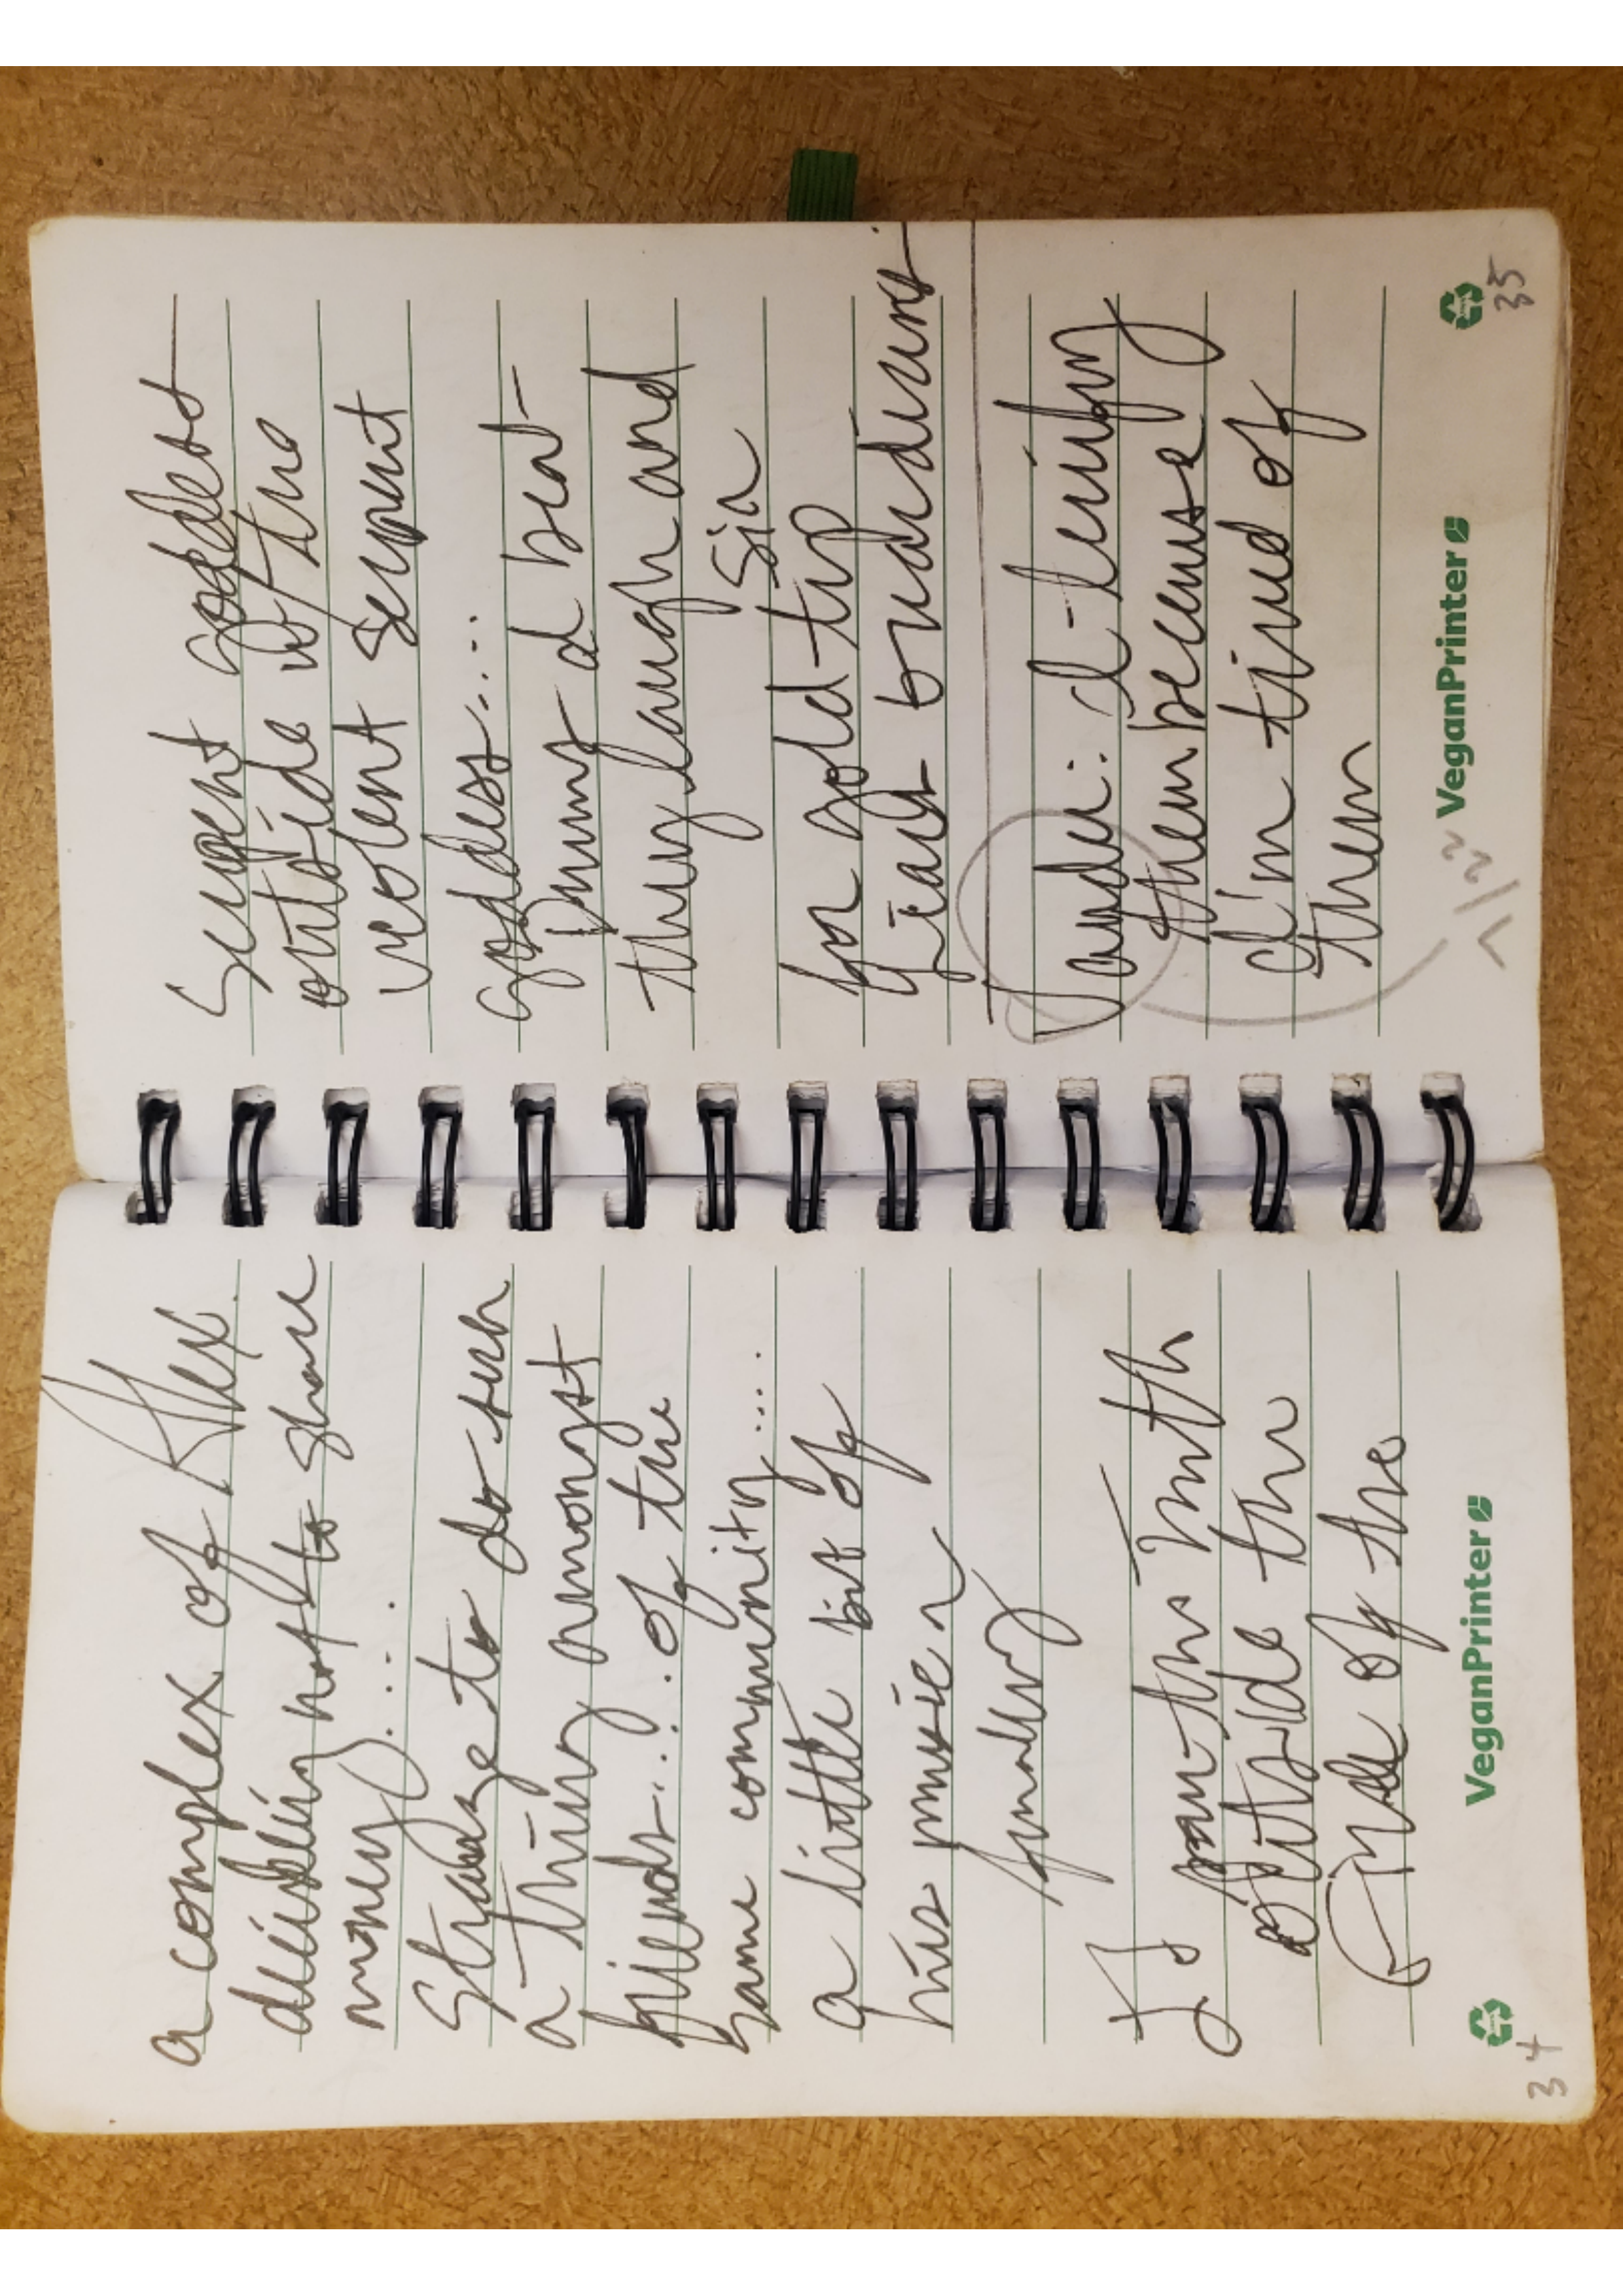 a complex of Alex.
deciding not to share
money)....
Strange to do such
a thing amongst
friends... of the
same community....
a little bit of
his music
finally
outside the
of the
VeganPrinter
34
Serpent goddess
outside w/ the
violent serpent
goddess....
Drums d beat -
they laugh and
Sir
for gold tip
guardians
: I -
them because
I'm tired of
them
1/22
VeganPrinter
35